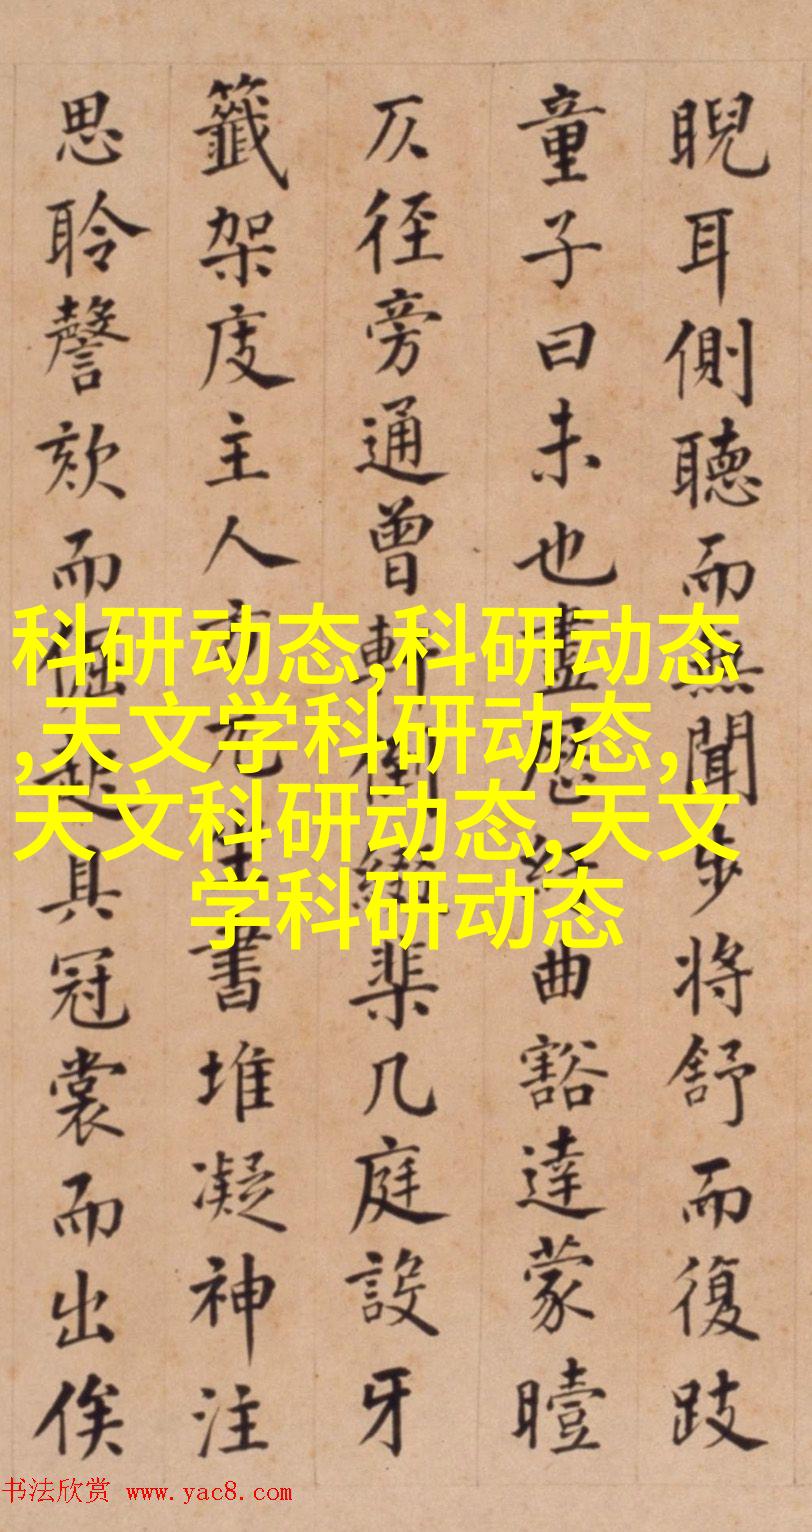 睨耳側聽而無聞步將舒而復跂
童子曰未也盡歷紆曲豁達蒙曀
仄徑旁通曾軒倒綴棐几庭設牙
籤架庋主人方兀坐書堆凝神注
思聆謦欬而倔起具冠裳而出俟
科研动态,科研动态
,天文学科研动态,
天文科研动态,天文
学科研动态
书法欣赏 www.yac8.com